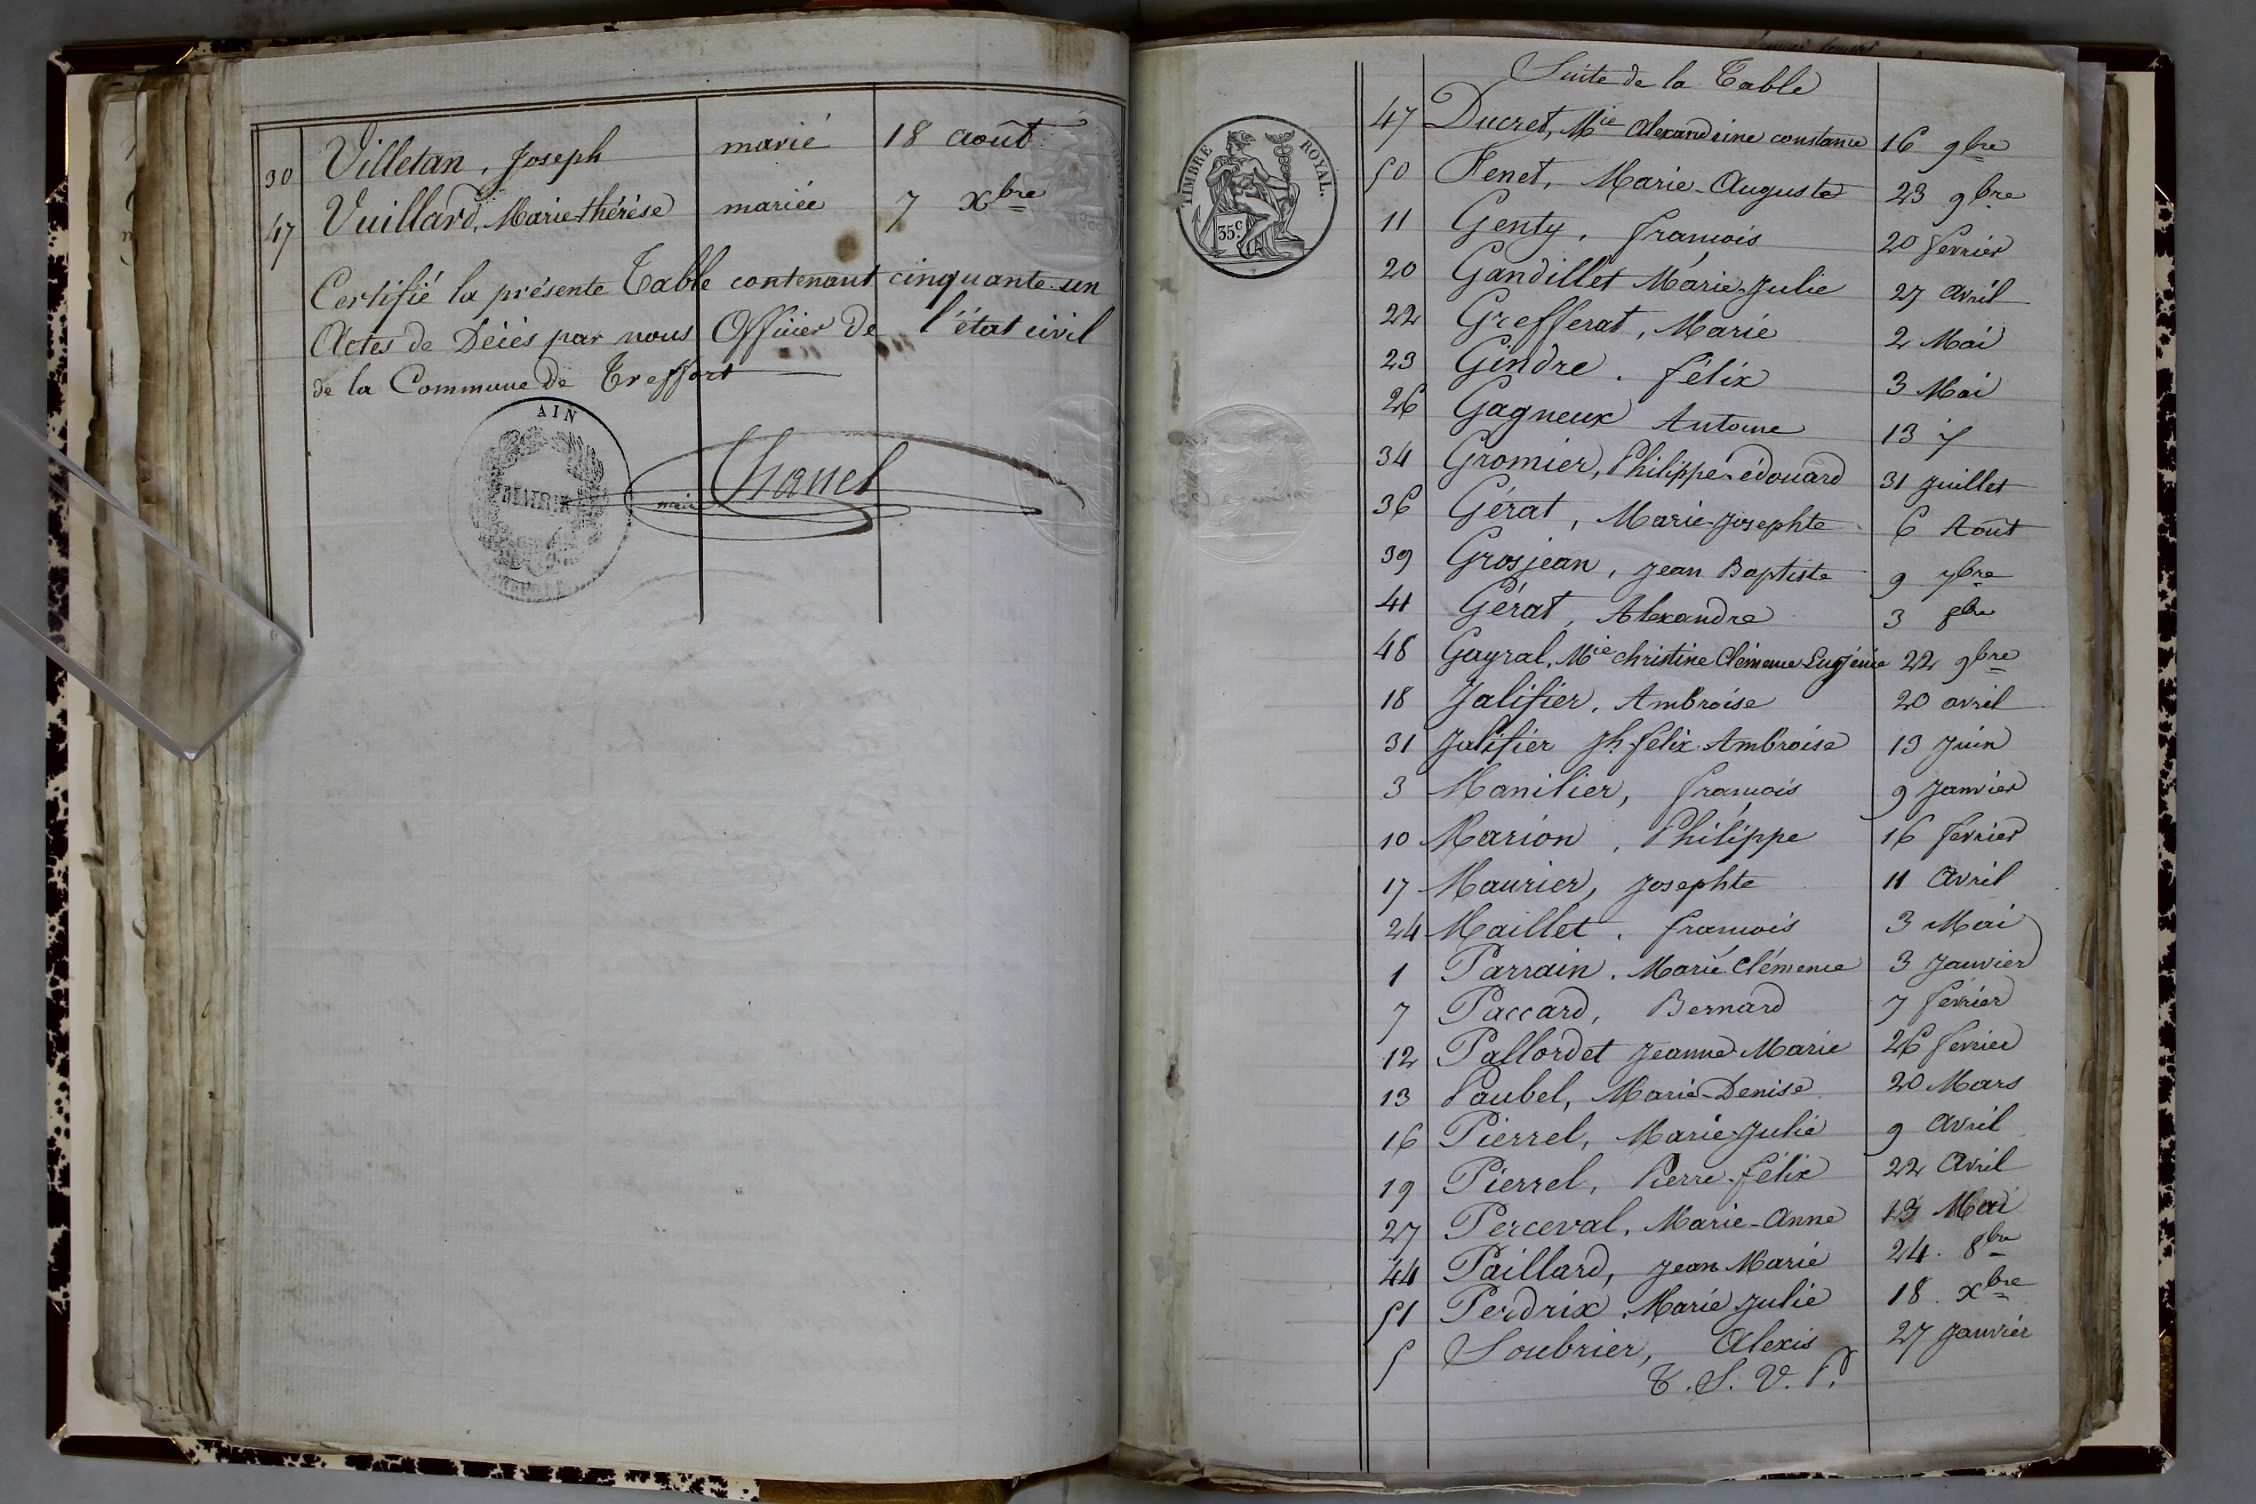 30 Villetan, Joseph marié 18 août
47 Vuillard, Marie thérèse mariée 7 Xbre
Certifié la présente Table contenant cinquante-un
Actes de Décès par nous Officier de l'état civil
de la Commune de Treffort
AIN
MAIRIE
maire Chanel
Suite de la Table
TIMBRE ROYAL.
35c.
47 Ducret, Mie Alexandrine constance 16 9bre
50 Fenet, Marie-Auguste 23 9bre
11 Genty, francois 20 fevrier
20 Gandillet Marie-Julie 27 avril
22 Grefferat, Marie 2 Mai
23 Gindre. félix 3 Mai
26 Gagneux Antoine 13 7
34 Gromier, Philippe-édouard 31 juillet
36 Gérat, Marie-josephte 6 Aout
39 Grosjean, jean Baptiste 9 7bre
41 Gérat, Alexandre 3 8bre
48 Gayral, Mie christine Clémence Eugénie 22 9bre
18 Jalifier, Ambroise 20 avril
31 Jalifier Jh felix Ambroise 13 Juin
3 Manilier, francois 9 Janvier
10 Marion, Philippe 16 fevrier
17 Maurier, josephte 11 avril
24 Maillet. francois 3 Mai
1 Parrain. Marie Clémence 3 Janvier
7 Paccard, Bernard 7 fevrier
12 Pallordet jeanne-Marie 26 fevrier
13 Paubel, Marie-Denise 20 Mars
16 Pierrel, Marie-Julie 9 avril
19 Pierrel, Pierre-félix 22 avril
27 Perceval, Marie-Anne 13 Mai
44 Paillard, jean Marie 24. 8bre
51 Perdrix, Marie Julie 18. Xbre
5 Soubrier, Alexis 27 janvier
T. S. V. P.